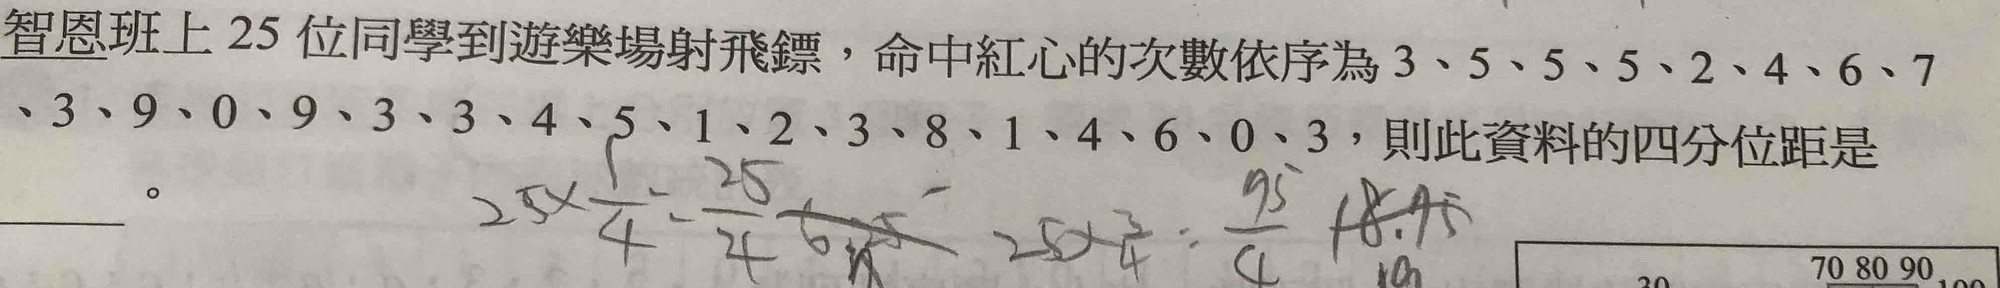 智恩班上 25 位同學到遊樂場射飛鏢，命中紅心的次數依序為 3、5、5、5、2、4、6、7
、3、9、0、9、3、3、4、5、1、2、3、8、1、4、6、0、3，則此資料的四分位距是
。
25×1/4=25/4 25×3/4=75/4 18.75
70 80 90
30 100